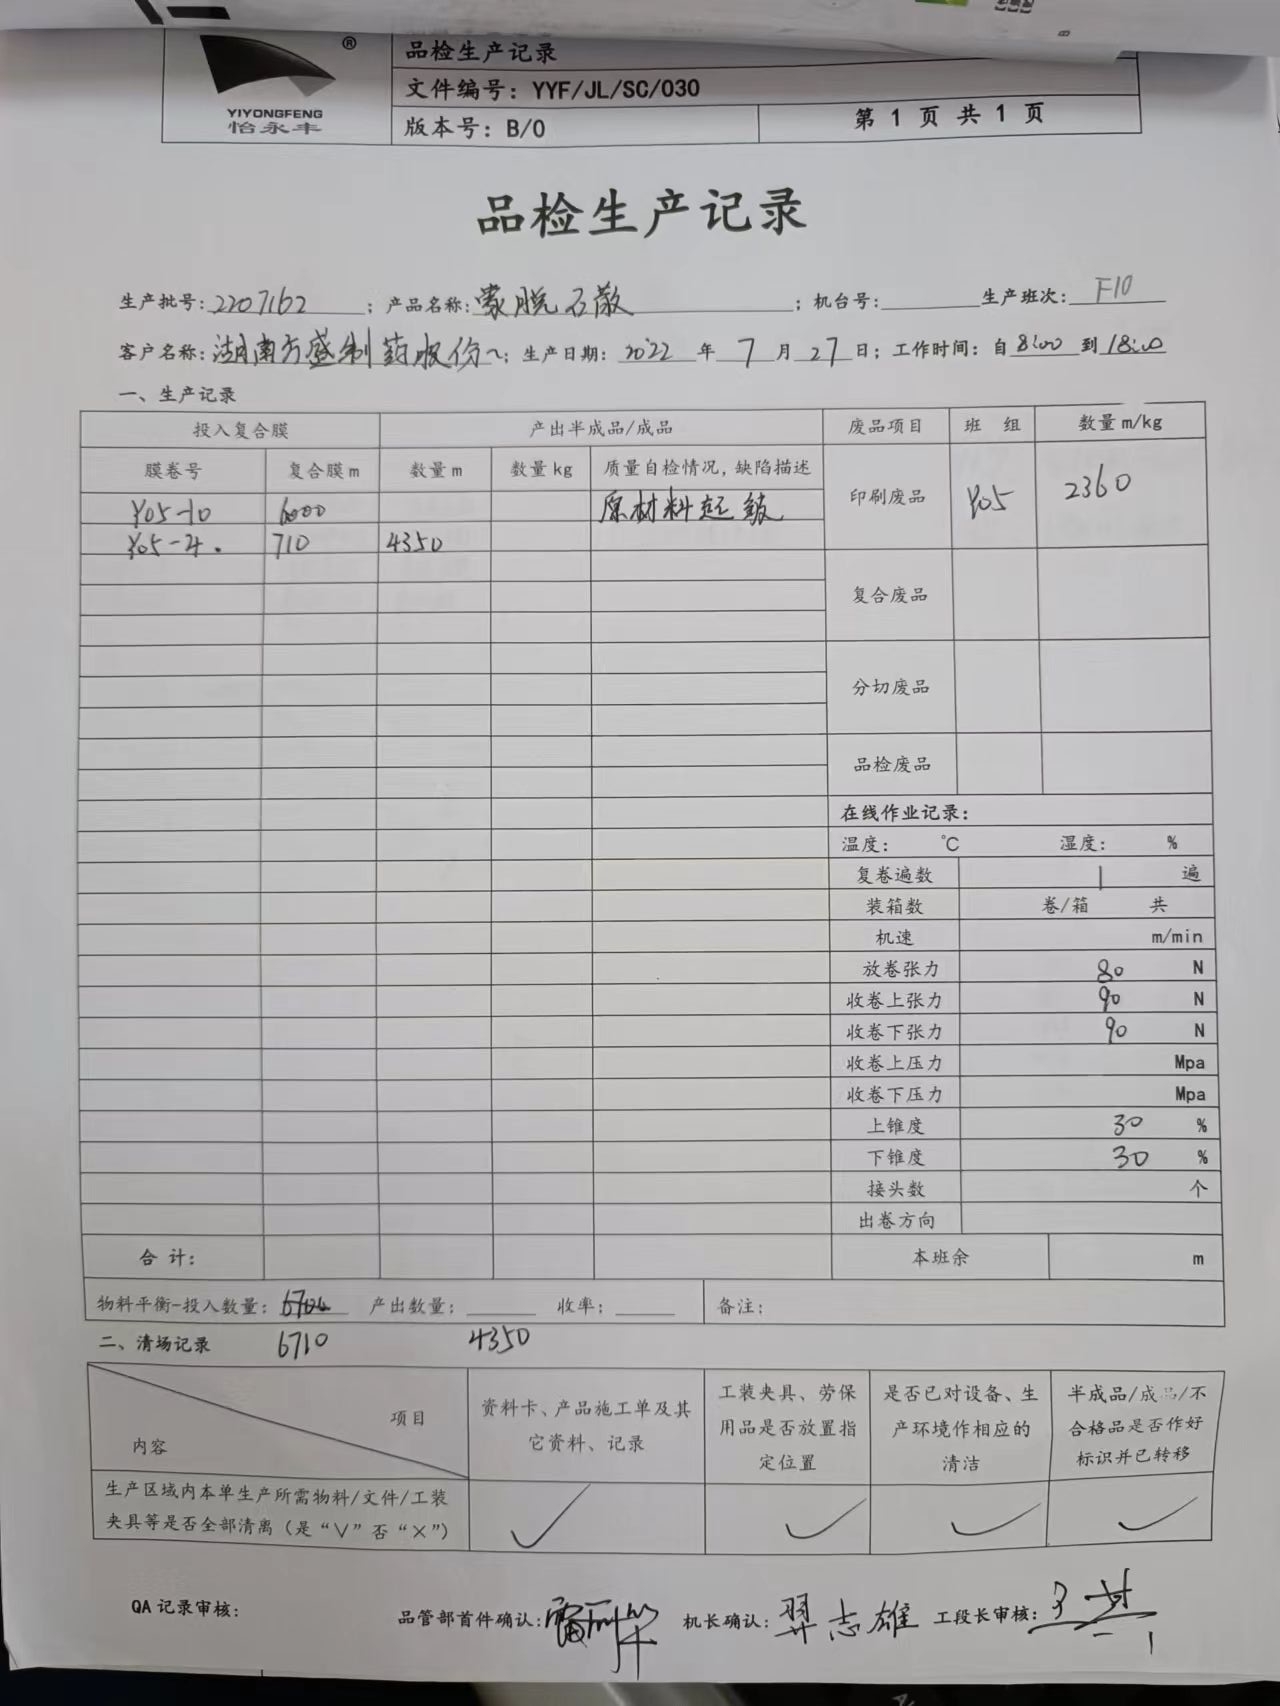 ®
YIYONGFENG
怡永丰
品检生产记录
文件编号：YYF/JL/SC/030
版本号：B/0
第 1 页 共 1 页
品检生产记录
生产批号：2207162 ；产品名称：蒙脱石散 ；机台号： 生产班次：F10
客户名称：湖南方盛制药股份～；生产日期：2022 年 7 月 27 日；工作时间：自 8:00 到 18:00
一、生产记录
投入复合膜 产出半成品/成品 废品项目 班 组 数量 m/kg
膜卷号 复合膜 m 数量 m 数量 kg 质量自检情况，缺陷描述
Y05-10 6000 原材料起皱
印刷废品 Y05 2360
Y05-4. 710 4350
复合废品
分切废品
品检废品
在线作业记录：
温度： ℃ 湿度： %
复卷遍数 1 遍
装箱数 卷/箱 共
机速 m/min
放卷张力 80 N
收卷上张力 90 N
收卷下张力 90 N
收卷上压力 Mpa
收卷下压力 Mpa
上锥度 30 %
下锥度 30 %
接头数 个
出卷方向
合 计： 本班余 m
物料平衡-投入数量： 产出数量： 收率： 备注：
二、清场记录 6710 4350
项目
内容
资料卡、产品施工单及其它资料、记录
工装夹具、劳保用品是否放置指定位置
是否已对设备、生产环境作相应的清洁
半成品/成品/不合格品是否作好标识并已转移
生产区域内本单生产所需物料/文件/工装
夹具等是否全部清离（是“√”否“×”） ✓ ✓ ✓ ✓
QA 记录审核： 品管部首件确认： 机长确认：羿志雄 工段长审核：